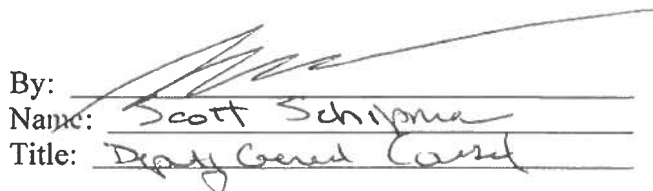 By:
Name: Scott Schipma
Title: Deputy General Counsel